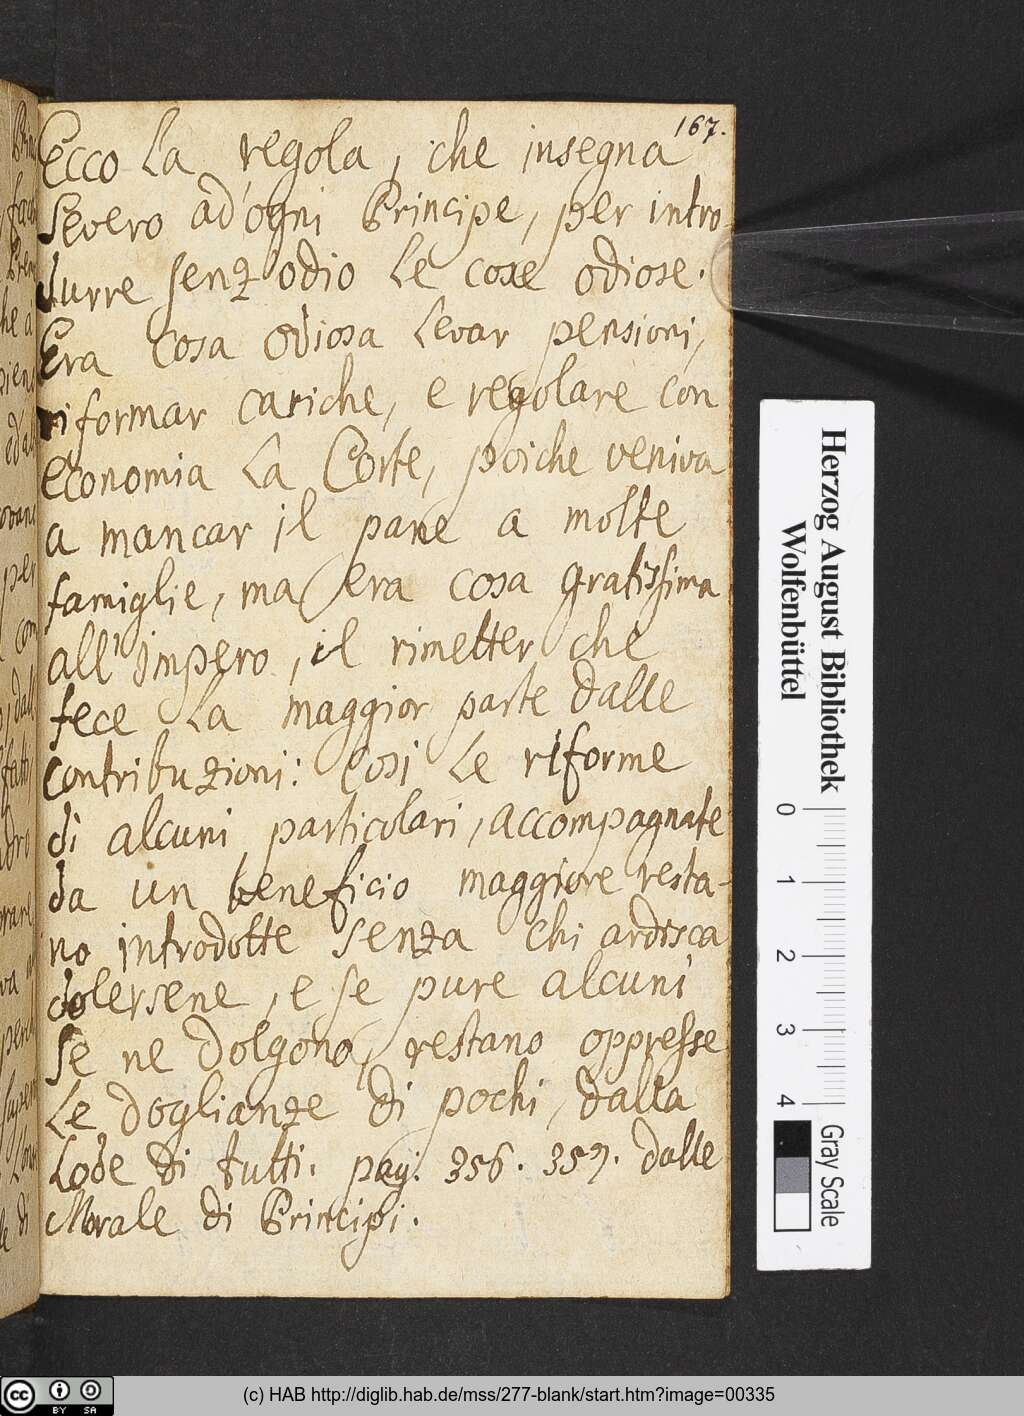 167.
Ecco la regola, che insegna
Severo ad'ogni Principe, per intro-
durre senz'odio le cose odiose.
Era cosa odiosa levar pensioni,
riformar cariche, e regolare con
economia la Corte, poiche veniva
a mancar il pane a molte
famiglie, ma era cosa gratissima
all'Impero, il rimetter che
fece la maggior parte dalle
contribuzioni: cosi le riforme
di alcuni particolari, accompagnate
da un beneficio maggiore resta-
no introdotte senza chi ardisca
dolersene, e se pure alcuni
se ne dolgono, restano oppresse
le doglianze di pochi, dalla
lode di tutti. pag. 356. 357. dalle
Morale di Principi.
Herzog August Bibliothek
Wolfenbüttel
0 1 2 3 4
Gray Scale
cc BY SA
(c) HAB http://diglib.hab.de/mss/277-blank/start.htm?image=00335